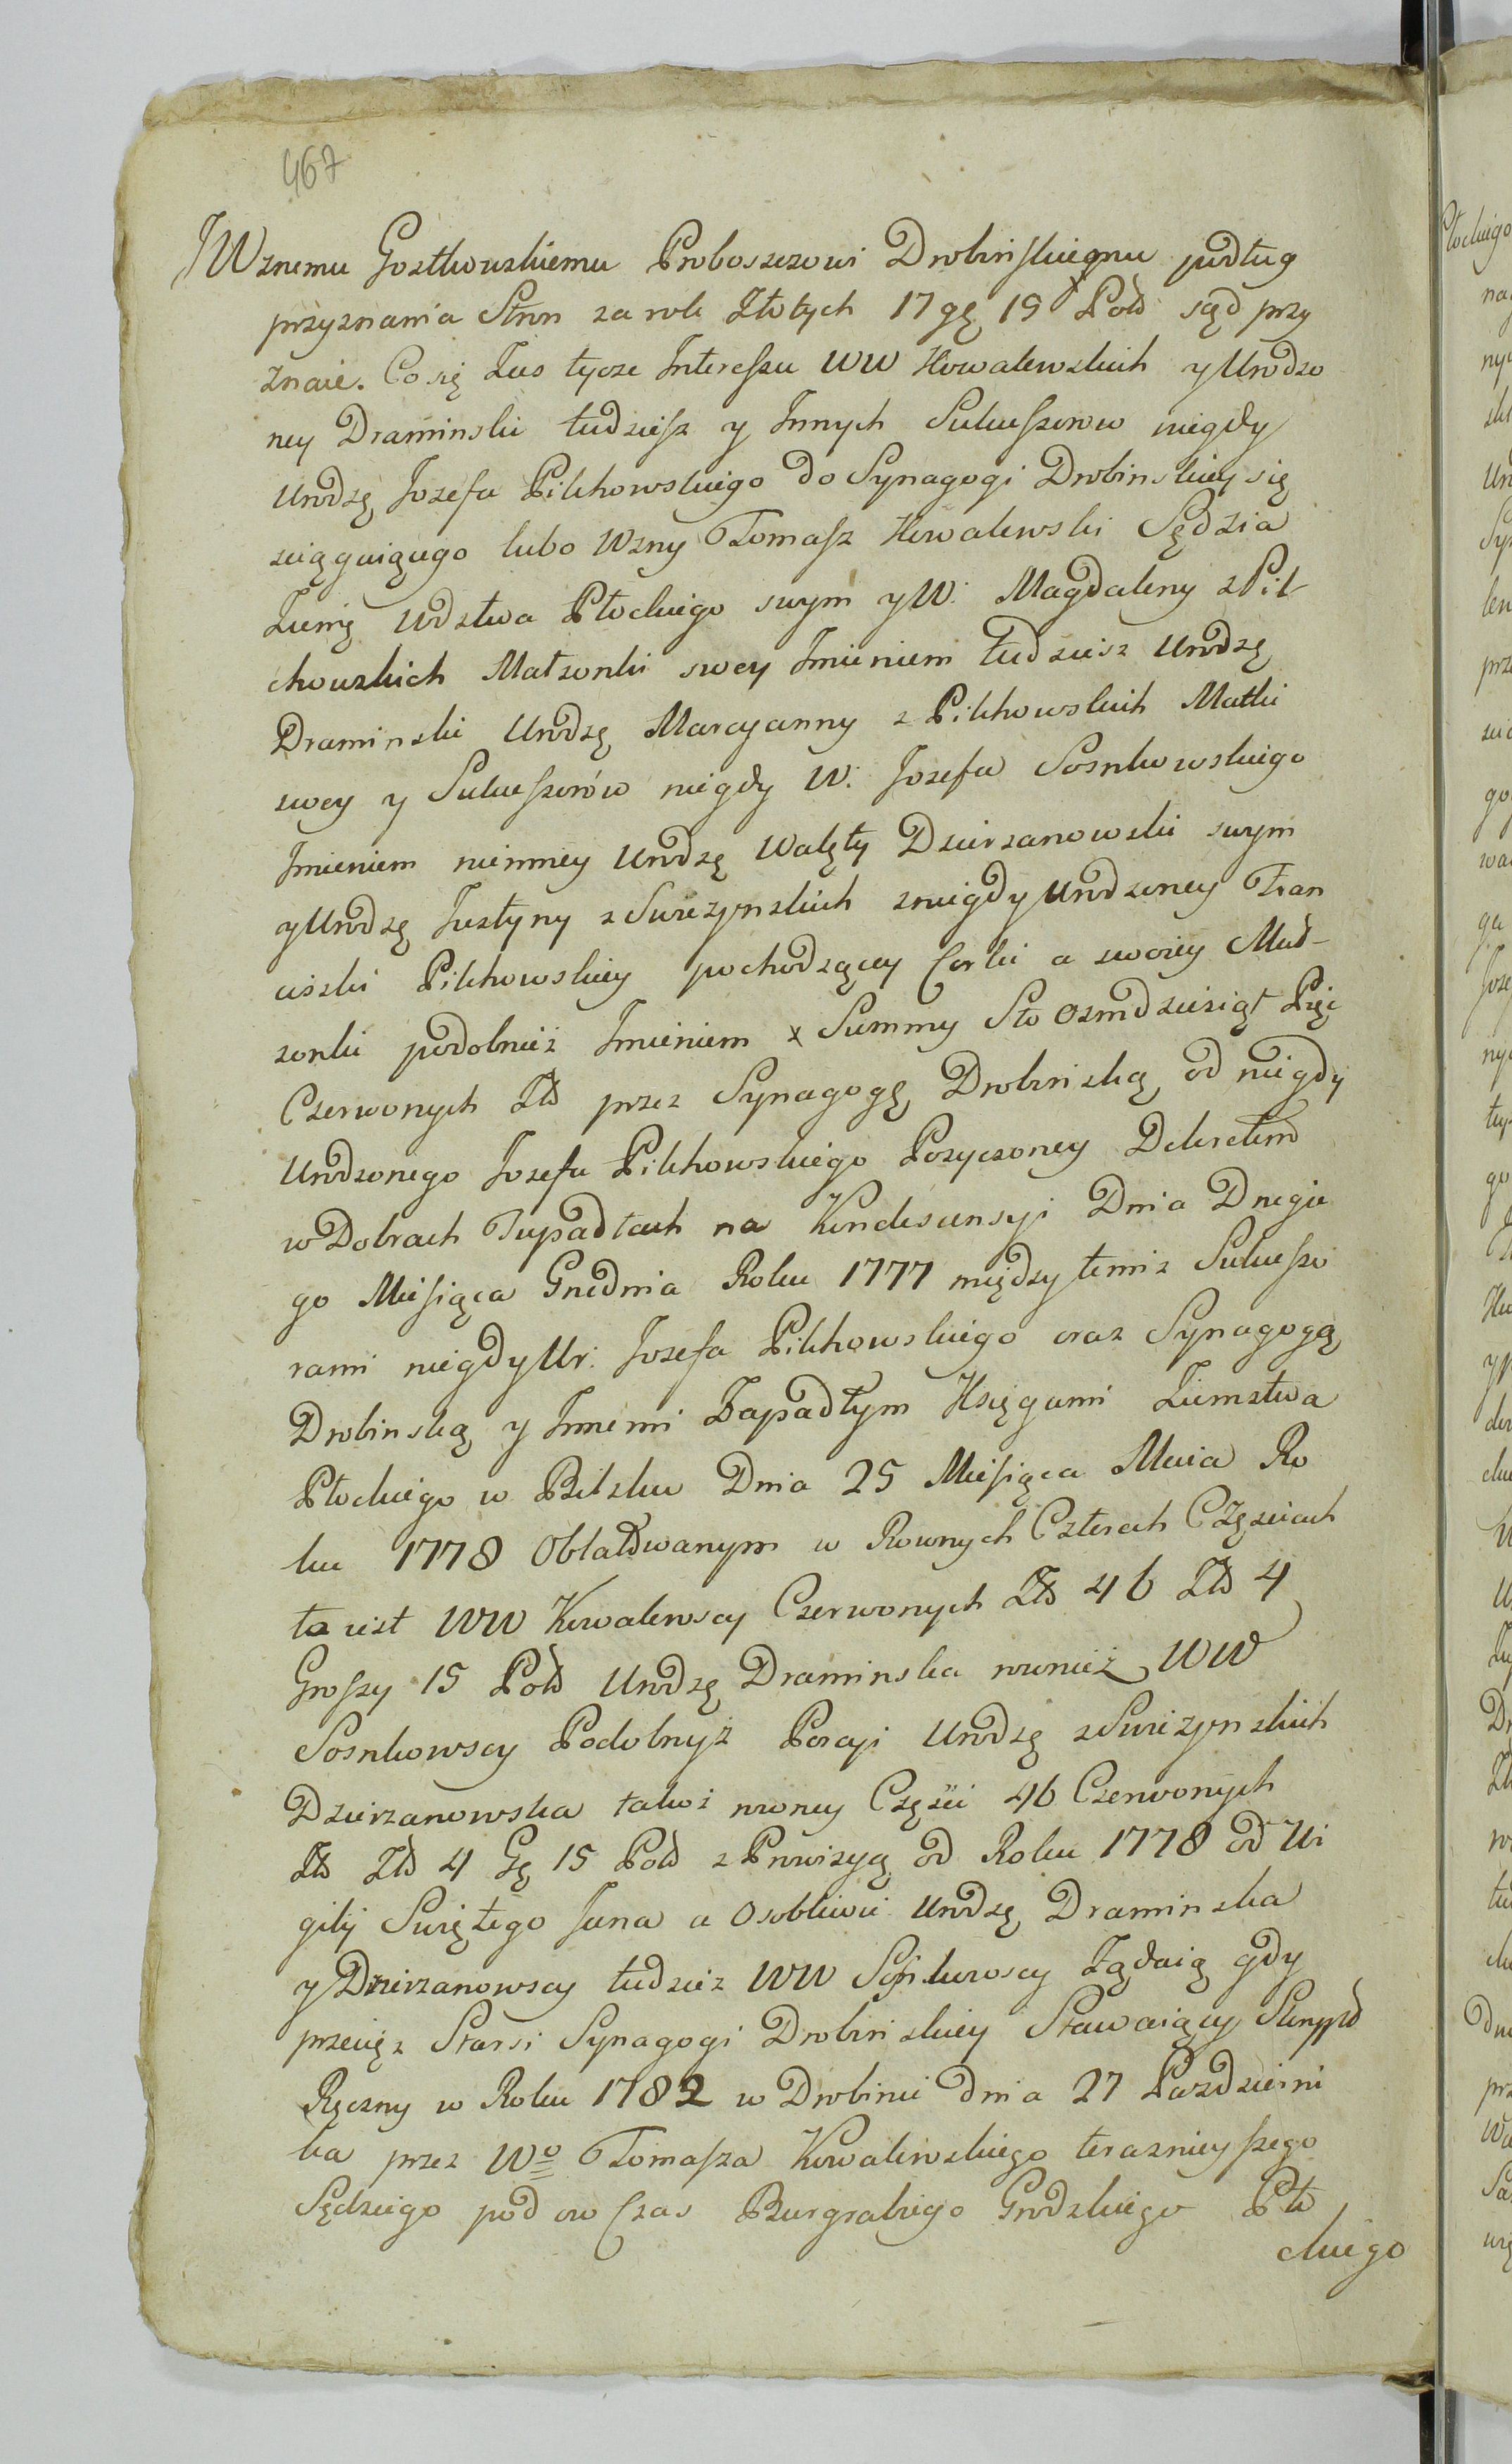 467
JWznemu Gostkowskiemu Proboszczowi Drobinskiemu podług
przyznania Stron za rok Złotych 17 gę 19 Poł sąd przy
znaie. Co się Zas tycze Interessu WW Kowalewskich y Urodzo
ney Draminski tudziesz y Innych Sukcessorow niegdy
Urodzę Jozefa Pilchowskiego do Synagogi Drobinskiey się
sciągaiącego lubo Wzny Tomasz Kowalewski Sędzia
Ziemę Wdztwa Płockiego swym y W. Magdaleny z Pil-
chowskich Małzonki swey Imieniem tudziesz Urodzę
Draminski Urodzę Marcyanny z Pilchowskich Matki
swey y Sukcessorów niegdy W. Jozefa Sosnkowskiego
Imieniem niemniey Urodzę Walęty Dzierzanowski swym
y Urodzę Justyny z Swiezynskich zniegdy Urodzoney Fran
ciszki Pilchowskiey pochodzącey Corki a swoiey Mał-
zonki podobnież Imieniem x Summy Sto Osmdziesiąt Pięc
Czerwonych Zło przez Synagogę Drobinską od niegdy
Urodzonego Jozefa Pilchowskiego Pozyczoney Dekretem
w Dobrach Tupadłach na Kondescensyi Dnia Drugie
go Miesiąca Grudnia Roku 1777 między temiz Sukcesso
rami niegdy Ur. Jozefa Pilchowskiego oraz Synagogą
Drobinską y Innemi Zapadłym Księgami Ziemstwa
Płockiego w Bilsku Dnia 25 Miesiąca Maia Ro
ku 1778 Oblatowanym w Rownych Czterech Częsciach
to iest WW Kowalewscy Czerwonych Zło 46 Zło 4
Groszy 15 Poł Urodzę Draminska rownież WW
Sosnkowscy Podobnyż Porcyi Urodzę z Swiezynskich
Dzierzanowska takoż rowney Częsci 46 Czerwonych
Zło Zło 4 Gę 15 Poł z Prowizyą od Roku 1778 od Wi
gilij Swiętego Jana a Osobliwie Urodzę Draminska
y Dzierzanowscy tudzież WW Sosnkowscy Ządaią gdy
przeciąz Starsi Synagogi Drobinskiey Stawaiący Skrypt
Ręczny w Roku 1782 w Drobinie dnia 27 Pazdzierni
ka przez Wo Tomasza Kowalewskiego teraznieyszego
Sędziego pod ow Czas Burgrabiego Grodzkiego Pło
ckiego